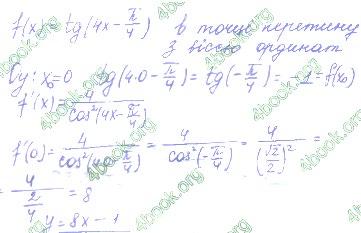 f(x) = tg(4x - π/4) в точці перетину
з віссю ординат
Oy: x₀=0 tg(4·0 - π/4) = tg(-π/4) = -1 = f(x₀)
f'(x) = 4/cos²(4x - π/4)
f'(0) = 4/cos²(4·0 - π/4) = 4/cos²(-π/4) = 4/(√2/2)² =
= 4/(2/4) = 8
y = 8x - 1
4book.org